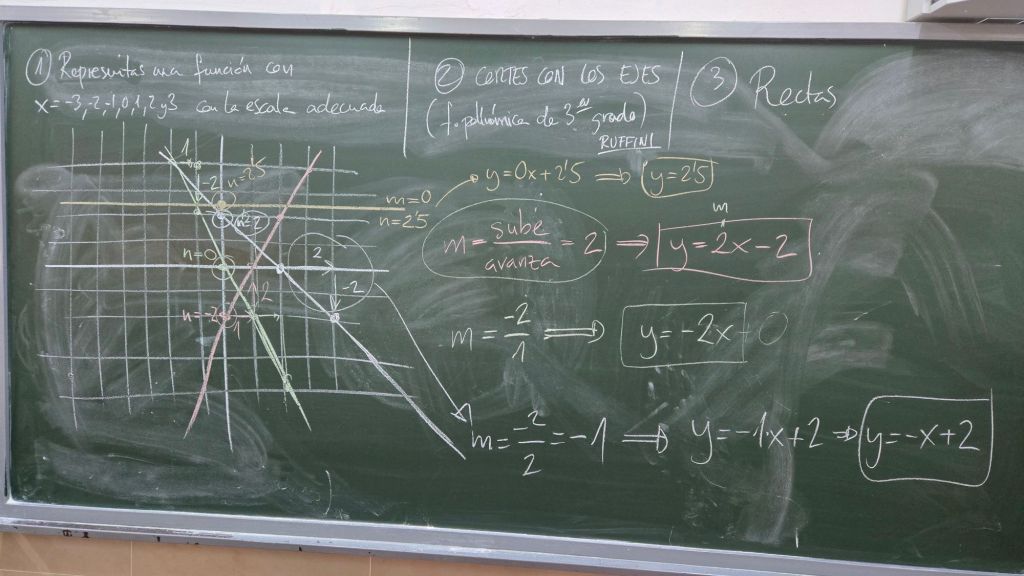 ① Representas una función con
x = -3, -2, -1, 0, 1, 2 y 3 con la escala adecuada
② CORTES CON LOS EJES
(f. polinómica de 3er grado)
RUFFINI
③ Rectas
1
-2
n=2'5
m=0
n=2'5
n=2
n=0
2
-2
2
n=-2
1
y=0x+2'5 ⇒ y=2'5
m = sube/avanza = 2 ⇒ y=2x-2
m
m = -2/1 ⇒ y=-2x
m = -2/2 = -1 ⇒ y=-1·x+2 ⇒ y=-x+2